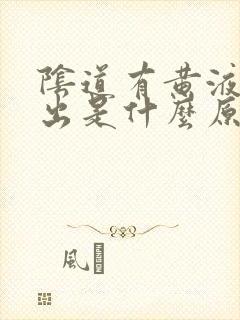 陰道有黃液
出是什麼原
風